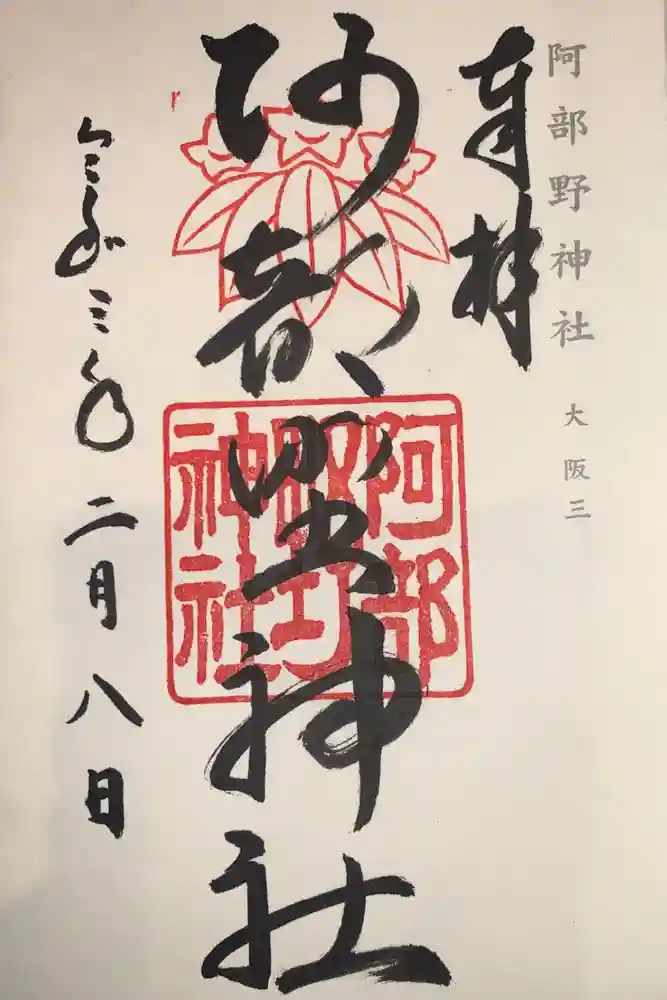 阿部野神社 大阪三
奉拝
阿部野神社
阿部
野
神社
令和三年二月八日